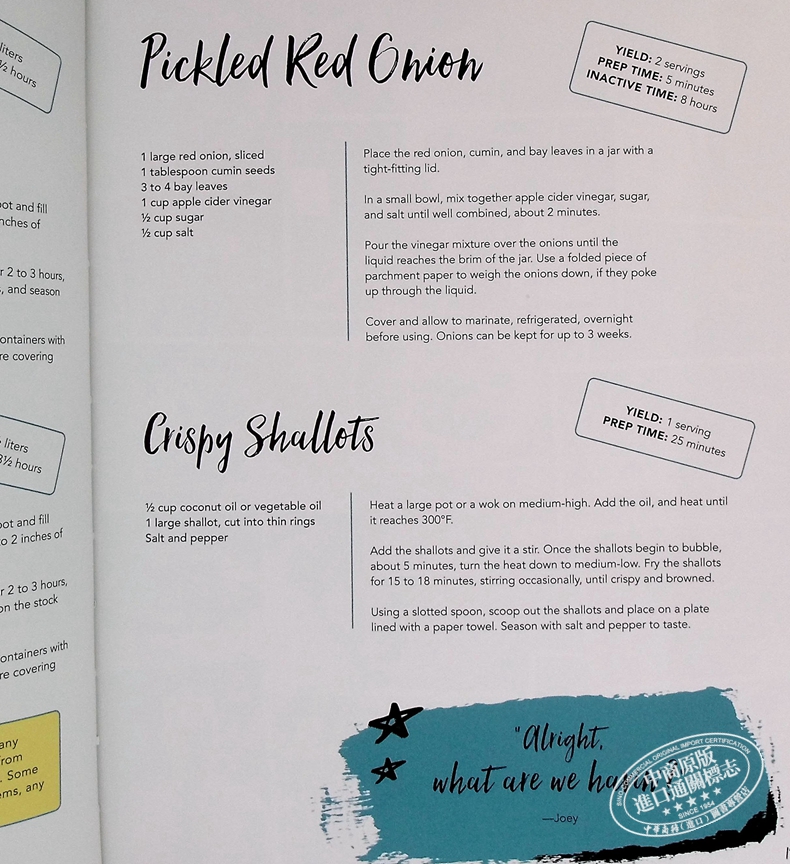 liters
½ hours
pot and fill
nches of
r 2 to 3 hours,
, and season
ontainers with
re covering
liters
3½ hours
pot and fill
o 2 inches of
r 2 to 3 hours,
on the stock
ontainers with
re covering
any
from
. Some
ems, any
Pickled Red Onion
YIELD: 2 servings
PREP TIME: 5 minutes
INACTIVE TIME: 8 hours
1 large red onion, sliced
1 tablespoon cumin seeds
3 to 4 bay leaves
1 cup apple cider vinegar
½ cup sugar
½ cup salt
Place the red onion, cumin, and bay leaves in a jar with a
tight-fitting lid.
In a small bowl, mix together apple cider vinegar, sugar,
and salt until well combined, about 2 minutes.
Pour the vinegar mixture over the onions until the
liquid reaches the brim of the jar. Use a folded piece of
parchment paper to weigh the onions down, if they poke
up through the liquid.
Cover and allow to marinate, refrigerated, overnight
before using. Onions can be kept for up to 3 weeks.
Crispy Shallots
YIELD: 1 serving
PREP TIME: 25 minutes
½ cup coconut oil or vegetable oil
1 large shallot, cut into thin rings
Salt and pepper
Heat a large pot or a wok on medium-high. Add the oil, and heat until
it reaches 300°F.
Add the shallots and give it a stir. Once the shallots begin to bubble,
about 5 minutes, turn the heat down to medium-low. Fry the shallots
for 15 to 18 minutes, stirring occasionally, until crispy and browned.
Using a slotted spoon, scoop out the shallots and place on a plate
lined with a paper towel. Season with salt and pepper to taste.
"Alright,
what are we
—Joey
SINOCOPY ORIGINAL IMPORT CERTIFICATION
中商原版
進口通關標志
SINCE 1954